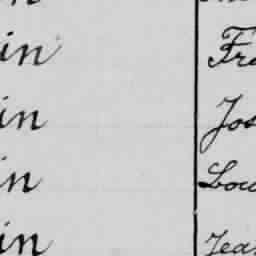 in Fra
in Jos
in Lou
in Jea